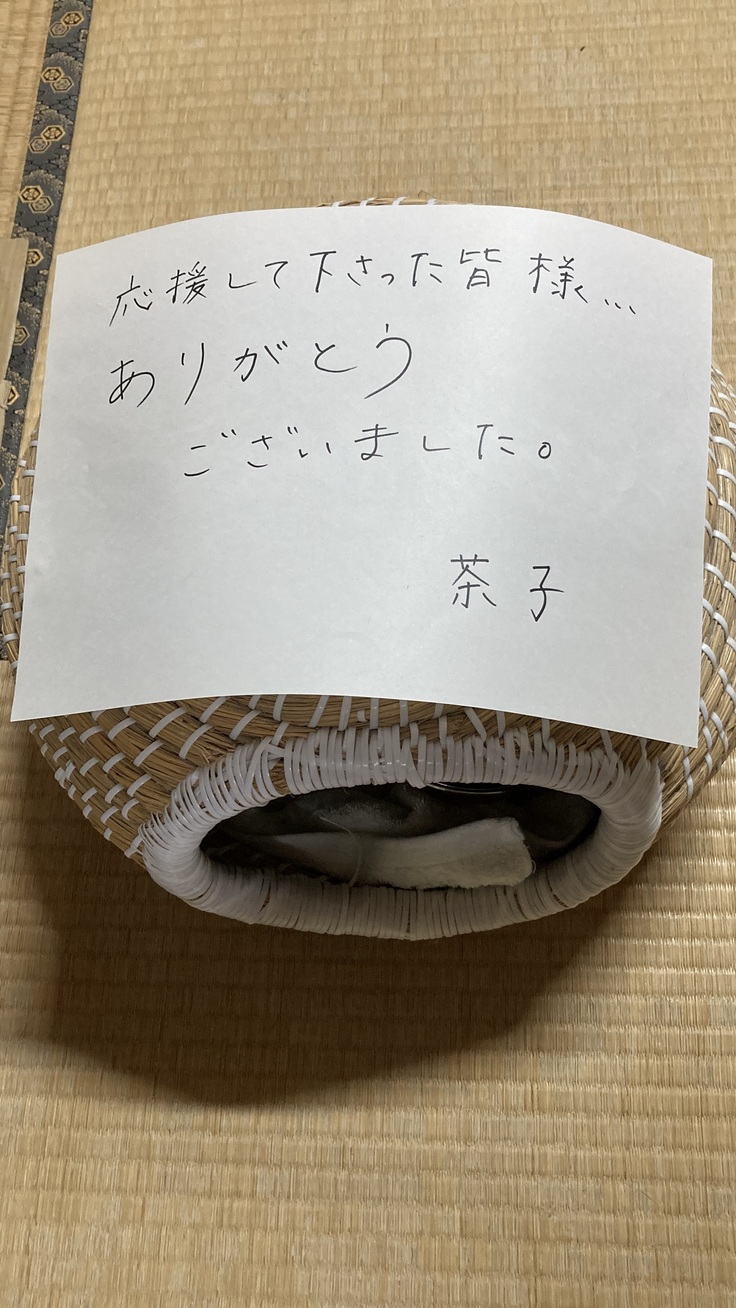 応援して下さった皆様...
ありがとう
ございました。
茶子